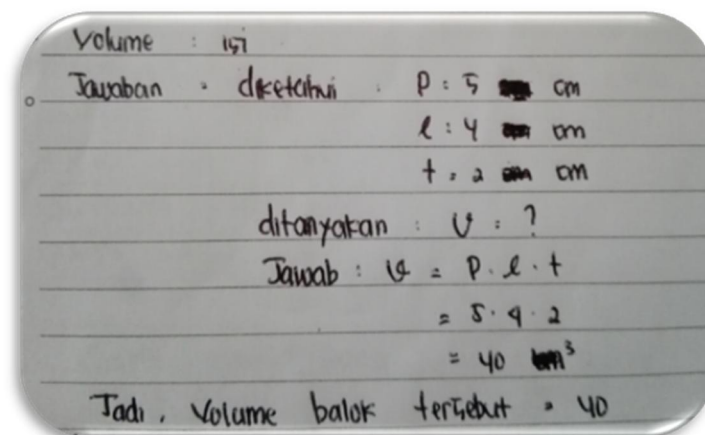 Volume : isi
Jawaban : diketahui : p : 5 cm
l : 4 cm
t = 2 cm
ditanyakan : V = ?
Jawab : V = p . l . t
= 5 . 4 . 2
= 40 cm³
Jadi, Volume balok tersebut = 40